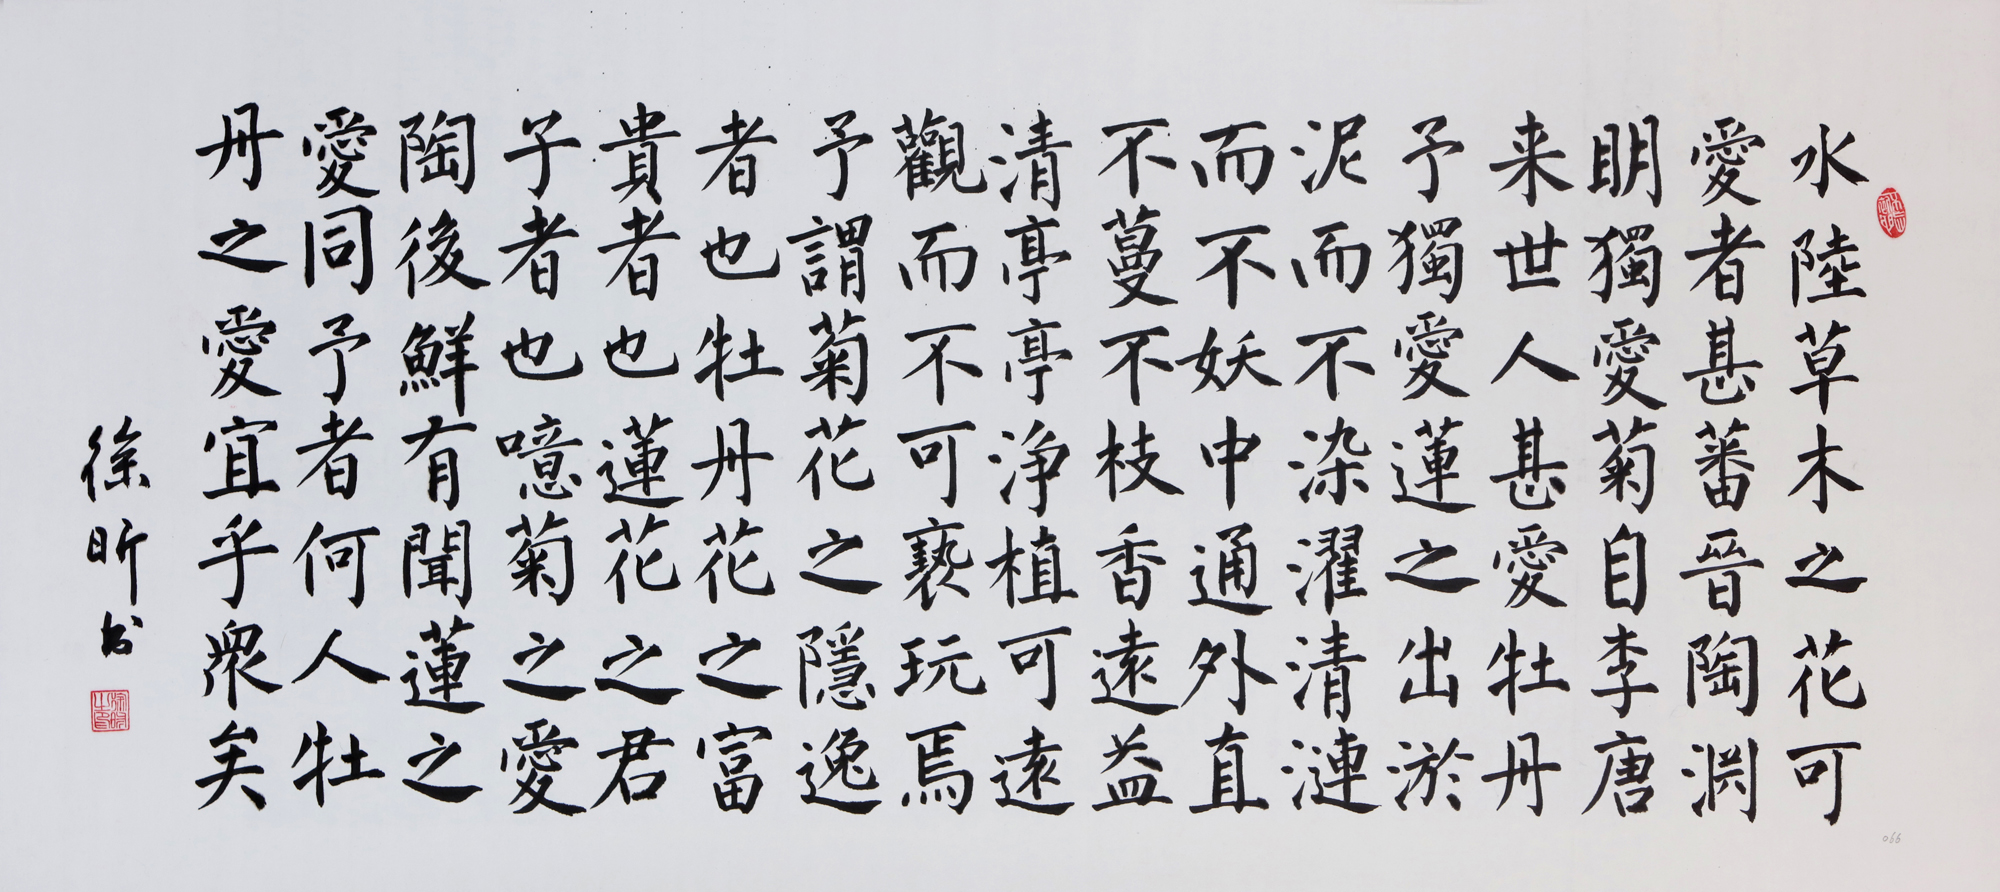 水陸草木之花可
愛者甚蕃晉陶渊
眀獨愛菊自李唐
来世人甚愛牡丹
予獨愛蓮之出淤
泥而不染濯清漣
而不妖中通外直
不蔓不枝香遠益
清亭亭浄植可遠
觀而不可褻玩焉
予謂菊花之隱逸
者也牡丹花之富
貴者也蓮花之君
子者也噫菊之愛
陶後鮮有聞蓮之
愛同予者何人牡
丹之愛宜乎衆矣
徐昕书
066